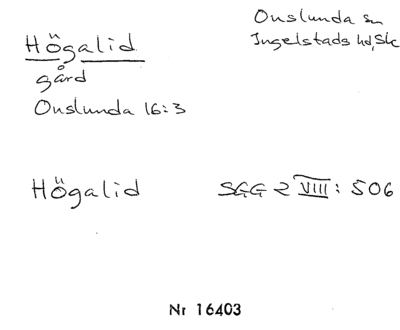 Högalid
gård
Onslunda 16:3
Onslunda sn
Ingelstads hd, Sk
Högalid
SGG 2 VIII: 506
Nr 16403